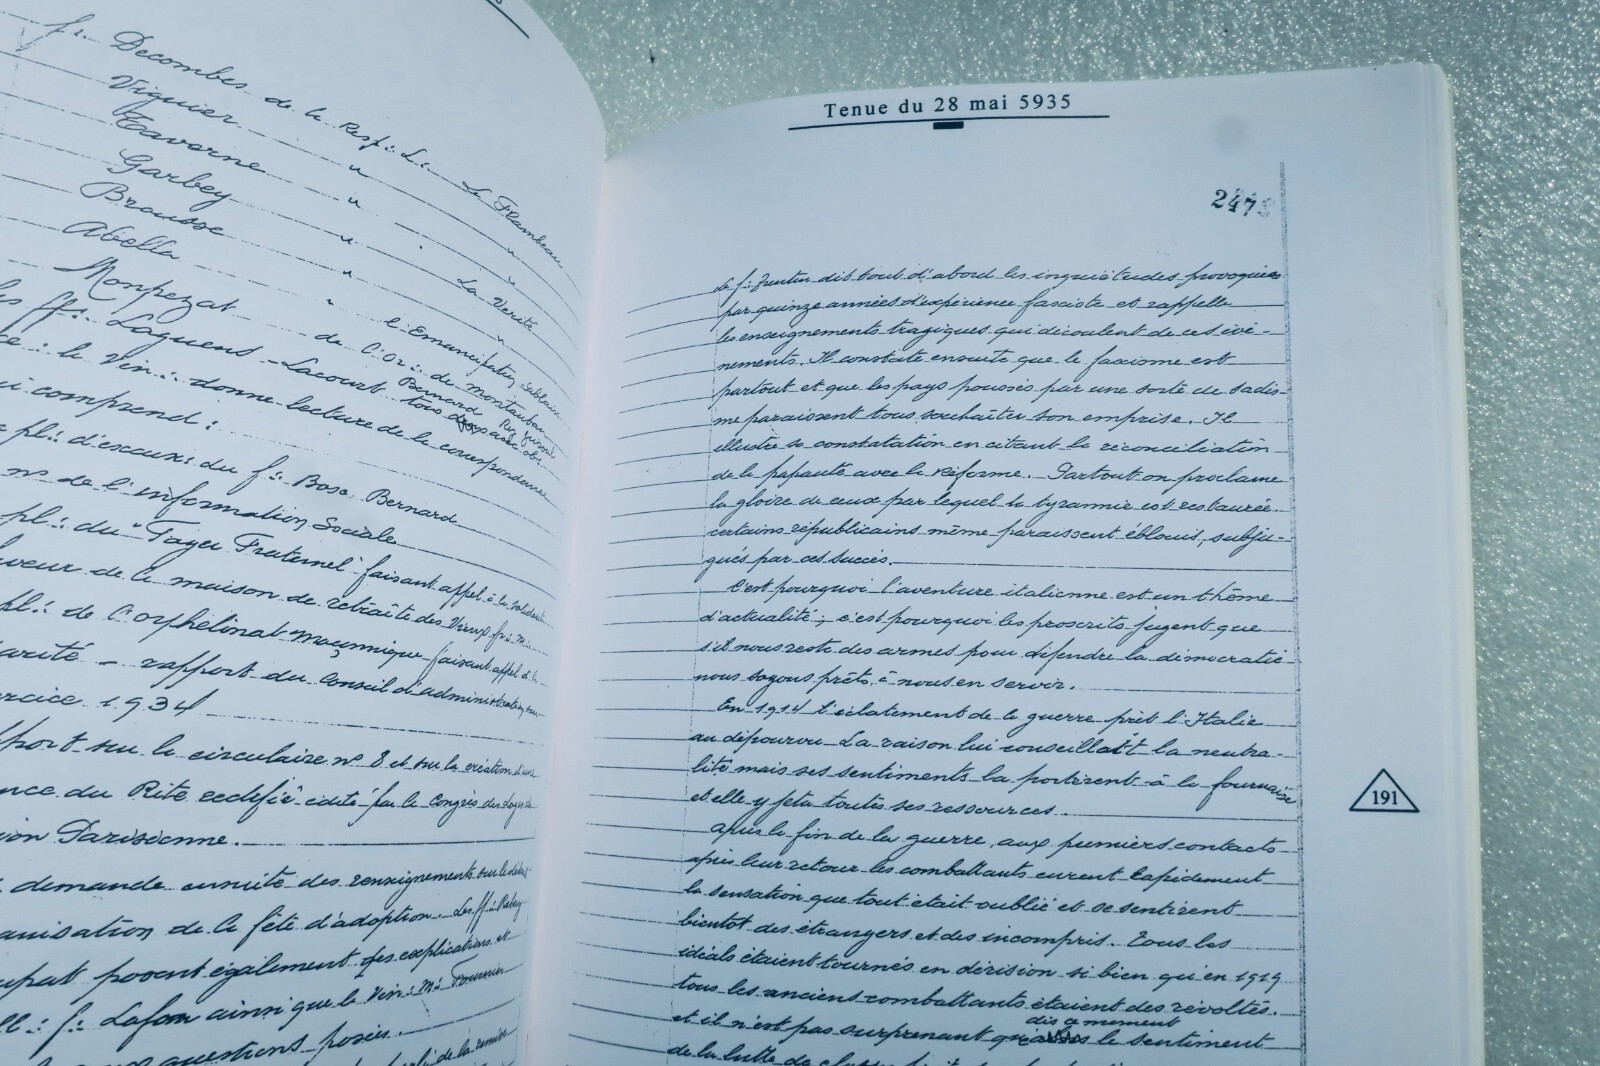 f∴ Decombes de la Resp∴ L∴ Le Flambeau
Viguier " "
Taverne " "
Garbey " "
Brousse " La Vérité
Abella " l'Emancipation
Monpezat de l'Or∴ de Montauban
ff∴ Laguens - Lacourt - Bernard
le Vén∴ donne lecture de la correspondance
comprend :
pl∴ d'excuses du f∴ Bosc Bernard
n° de l'information Sociale
pl∴ du "Foyer Fraternel" faisant appel à la
de la maison de retraite des Vieux
pl∴ de l'orphelinat maçonnique faisant appel à la
rapport du Conseil d'administration
1934
sur la circulaire n° 8 et sur la création d'une
du Rite rectifié édité par le Congrès des Loges de
Parisienne.
demande ensuite des renseignements sur
de la fête d'adoption. Les ff∴
posent également des explications et
f∴ Lafon ainsi que le Vén∴ M∴ Fournier
questions posées.
de la remise
Tenue du 28 mai 5935
247
Le f∴ Trentin dit tout d'abord les inquiétudes provoquées
par quinze années d'expérience fasciste et rappelle
les enseignements tragiques qui découlent de ces évè-
nements. Il constate ensuite que le fascisme est
partout et que les pays poussés par une sorte de sadis-
me paraissent tous souhaiter son emprise. Il
illustre sa constatation en citant la réconciliation
de la papauté avec la Réforme. Partout on proclame
la gloire de ceux par lequel la tyrannie est restaurée.
certains républicains même paraissent éblouis, subju-
gués par ces succès.
C'est pourquoi l'aventure italienne est un thème
d'actualité ; c'est pourquoi les proscrits jugent que
s'il nous reste des armes pour défendre la démocratie
nous soyons prêts à nous en servir.
En 1914 l'éclatement de la guerre prit l'Italie
au dépourvu. La raison lui conseillait la neutra-
lité mais ses sentiments la portèrent à la fournaise
et elle y jeta toutes ses ressources.
Après la fin de la guerre, aux premiers contacts
après leur retour les combattants eurent rapidement
la sensation que tout était oublié et se sentirent
bientôt des étrangers et des incompris. Tous les
idéals étaient tournés en dérision si bien qu'en 1919
tous les anciens combattants étaient des révoltés.
dès ce moment
et il n'est pas surprenant que le sentiment
de la lutte de
191